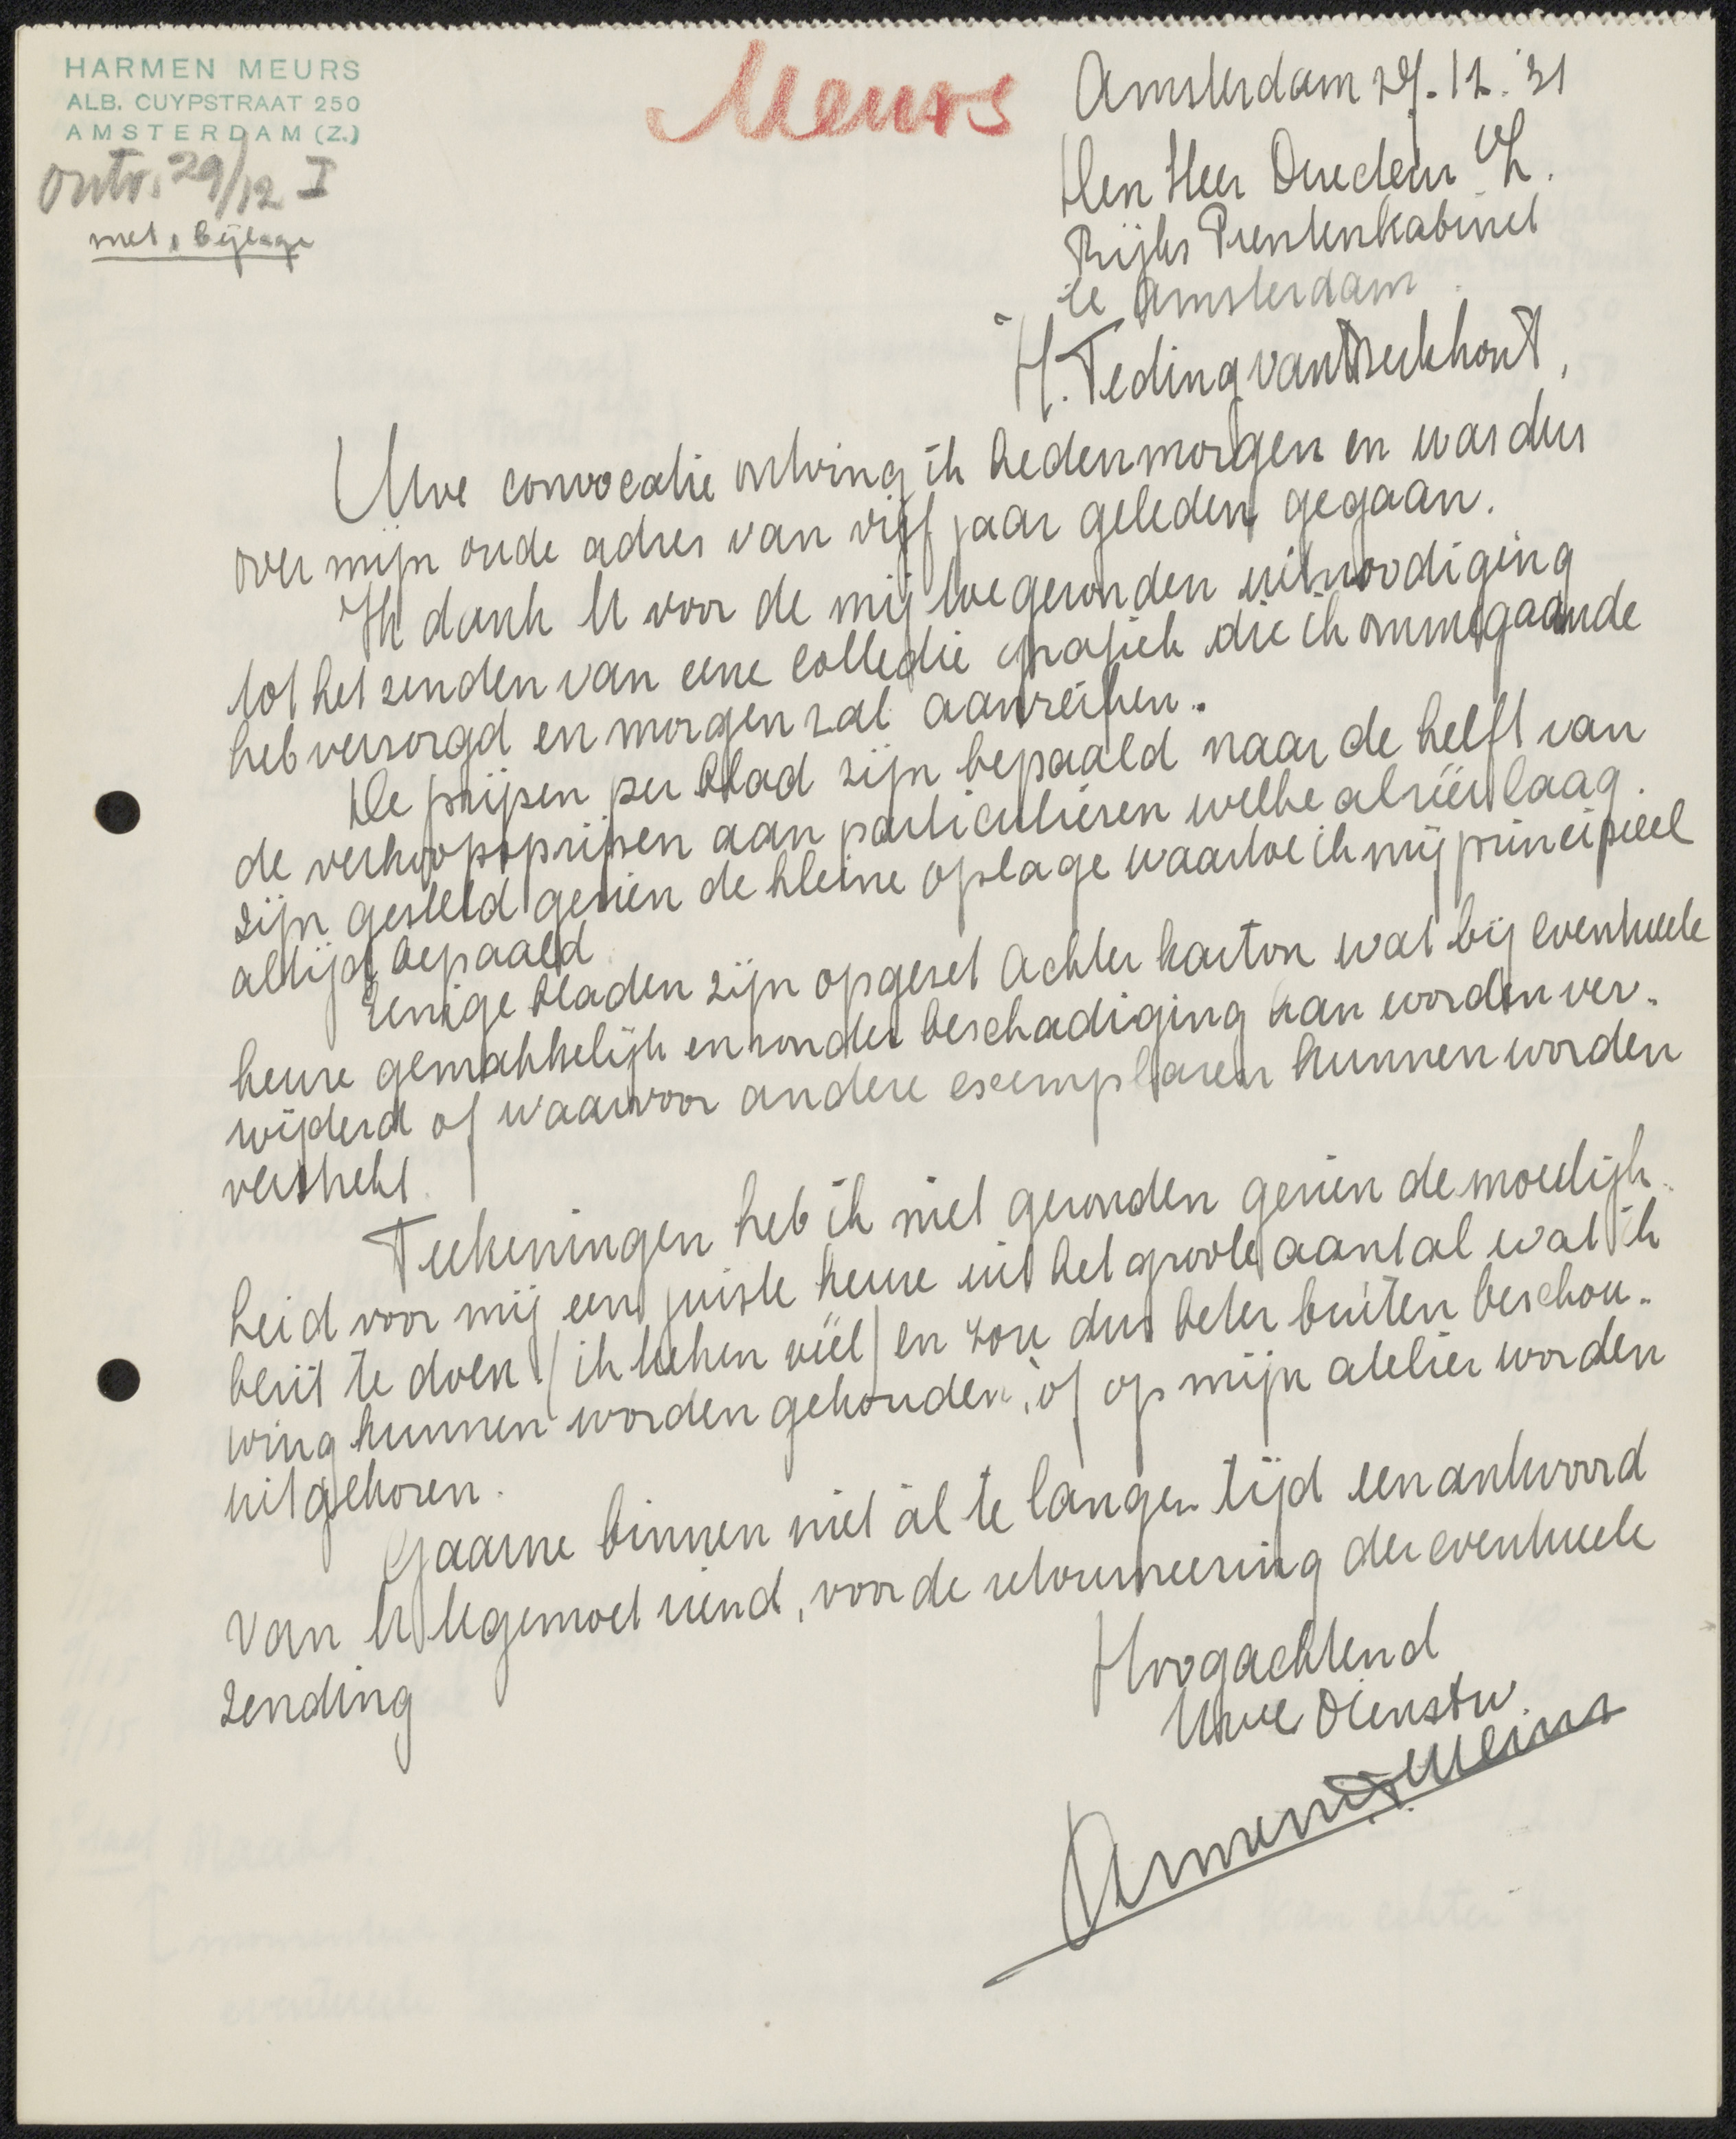 HARMEN MEURS
ALB. CUYPSTRAAT 250
AMSTERDAM (Z.)
ontv. 29/12 I
met 1 bijlage
Meurs
Amsterdam 29.12.'31
Den Heer Directeur v/h.
Rijks Prentenkabinet
te Amsterdam.
H. Teding van Berkhout,
Uwe convocatie ontving ik hedenmorgen en was dus
over mijn oude adres van vijf jaar geleden gegaan.
Ik dank U voor de mij toegezonden uitnoodiging
tot het zenden van eene collectie grafiek die ik ommegaande
heb verzorgd en morgen zal aanreiken.
De prijzen per blad zijn bepaald naar de helft van
de verkoopsprijzen aan particulieren welke al zéér laag
zijn gesteld gezien de kleine oplage waartoe ik mij principieel
altijd bepaald.
Eenige bladen zijn opgezet achter karton wat bij eventueele
keuze gemakkelijk en zonder beschadiging kan worden ver-
wijderd of waarvoor andere exemplaren kunnen worden
verstrekt.
Teekeningen heb ik niet gezonden gezien de moeilijk-
heid voor mij een juiste keuze uit het groote aantal wat ik
bezit te doen (ik teeken véél) en zou dus beter buiten beschou-
wing kunnen worden gehouden, òf op mijn atelier worden
uitgekozen.
Gaarne binnen niet al te langen tijd een antwoord
van U tegemoet ziend, voor de retourneering der eventueele
zending
Hoogachtend
Uwe Dienstw.
Armen Meurs